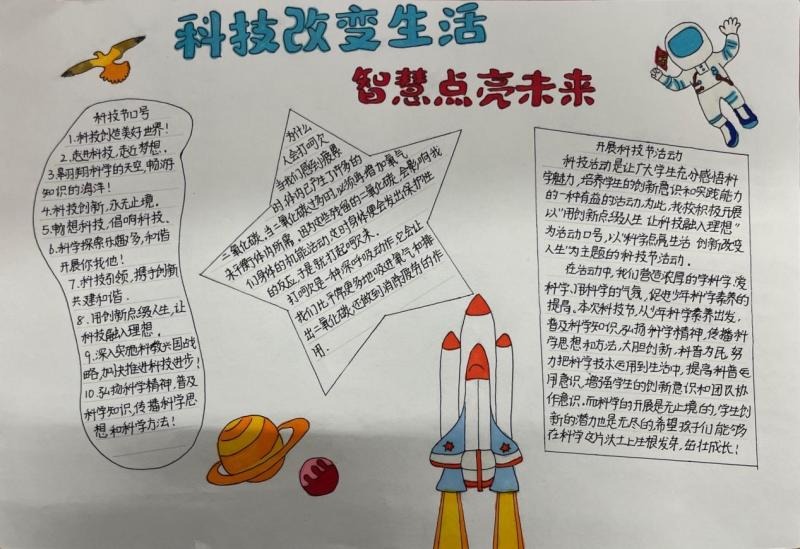 科技改变生活
智慧点亮未来
科技节口号
1.科技创造美好世界！
2.走进科技，走近梦想。
3.翱翔科学的天空，畅游
知识的海洋！
4.科技创新，永无止境。
5.畅想科技，倡响科技。
6.科学探索乐趣多，和谐
开展你我他！
7.科技引领，携手创新
共建和谐.
8.用创新点缀人生，让
科技融入理想.
9.深入实施科教兴国战
略，加快推进科技进步！
10.弘扬科学精神，普及
科学知识，传播科学思
想和科学方法！
为什么
人会打呵欠
当我们感到疲累
时，体内已产生了许多的
二氧化碳.当二氧化碳过多时，必须再增加氧气
来平衡体内所需.因为这些残留的二氧化碳，会影响我
们身体的机能活动，这时身体便会发出保护性
的反应，于是就打起呵欠来.
打呵欠是一种深呼吸动作，它会让
我们比平常更多地吸进氧气和排
出二氧化碳，还做到消除疲劳的作
用.
开展科技节活动
科技活动是让广大学生充分感悟科
学魅力，培养学生的创新意识和实践能力
的一种有益的活动，为此，我校积极开展
以“用创新点缀人生 让科技融入理想”
为活动口号，以“科学点亮生活 创新改变
人生”为主题的科技节活动.
在活动中，我们营造浓厚的学科学、爱
科学、用科学的气氛，促进少年科学素养的
提高.本次科技节，从少年科学素养出发，
普及科学知识，弘扬科学精神，传播科
学思想和方法，大胆创新，科普为民，努
力把科学技术运用到生活中，提高科普运
用意识，增强学生的创新意识和团队协
作意识.而科学的开展是无止境的，学生创
新的潜力也是无尽的，希望孩子们能够
在科学这片沃土上生根发芽，茁壮成长！